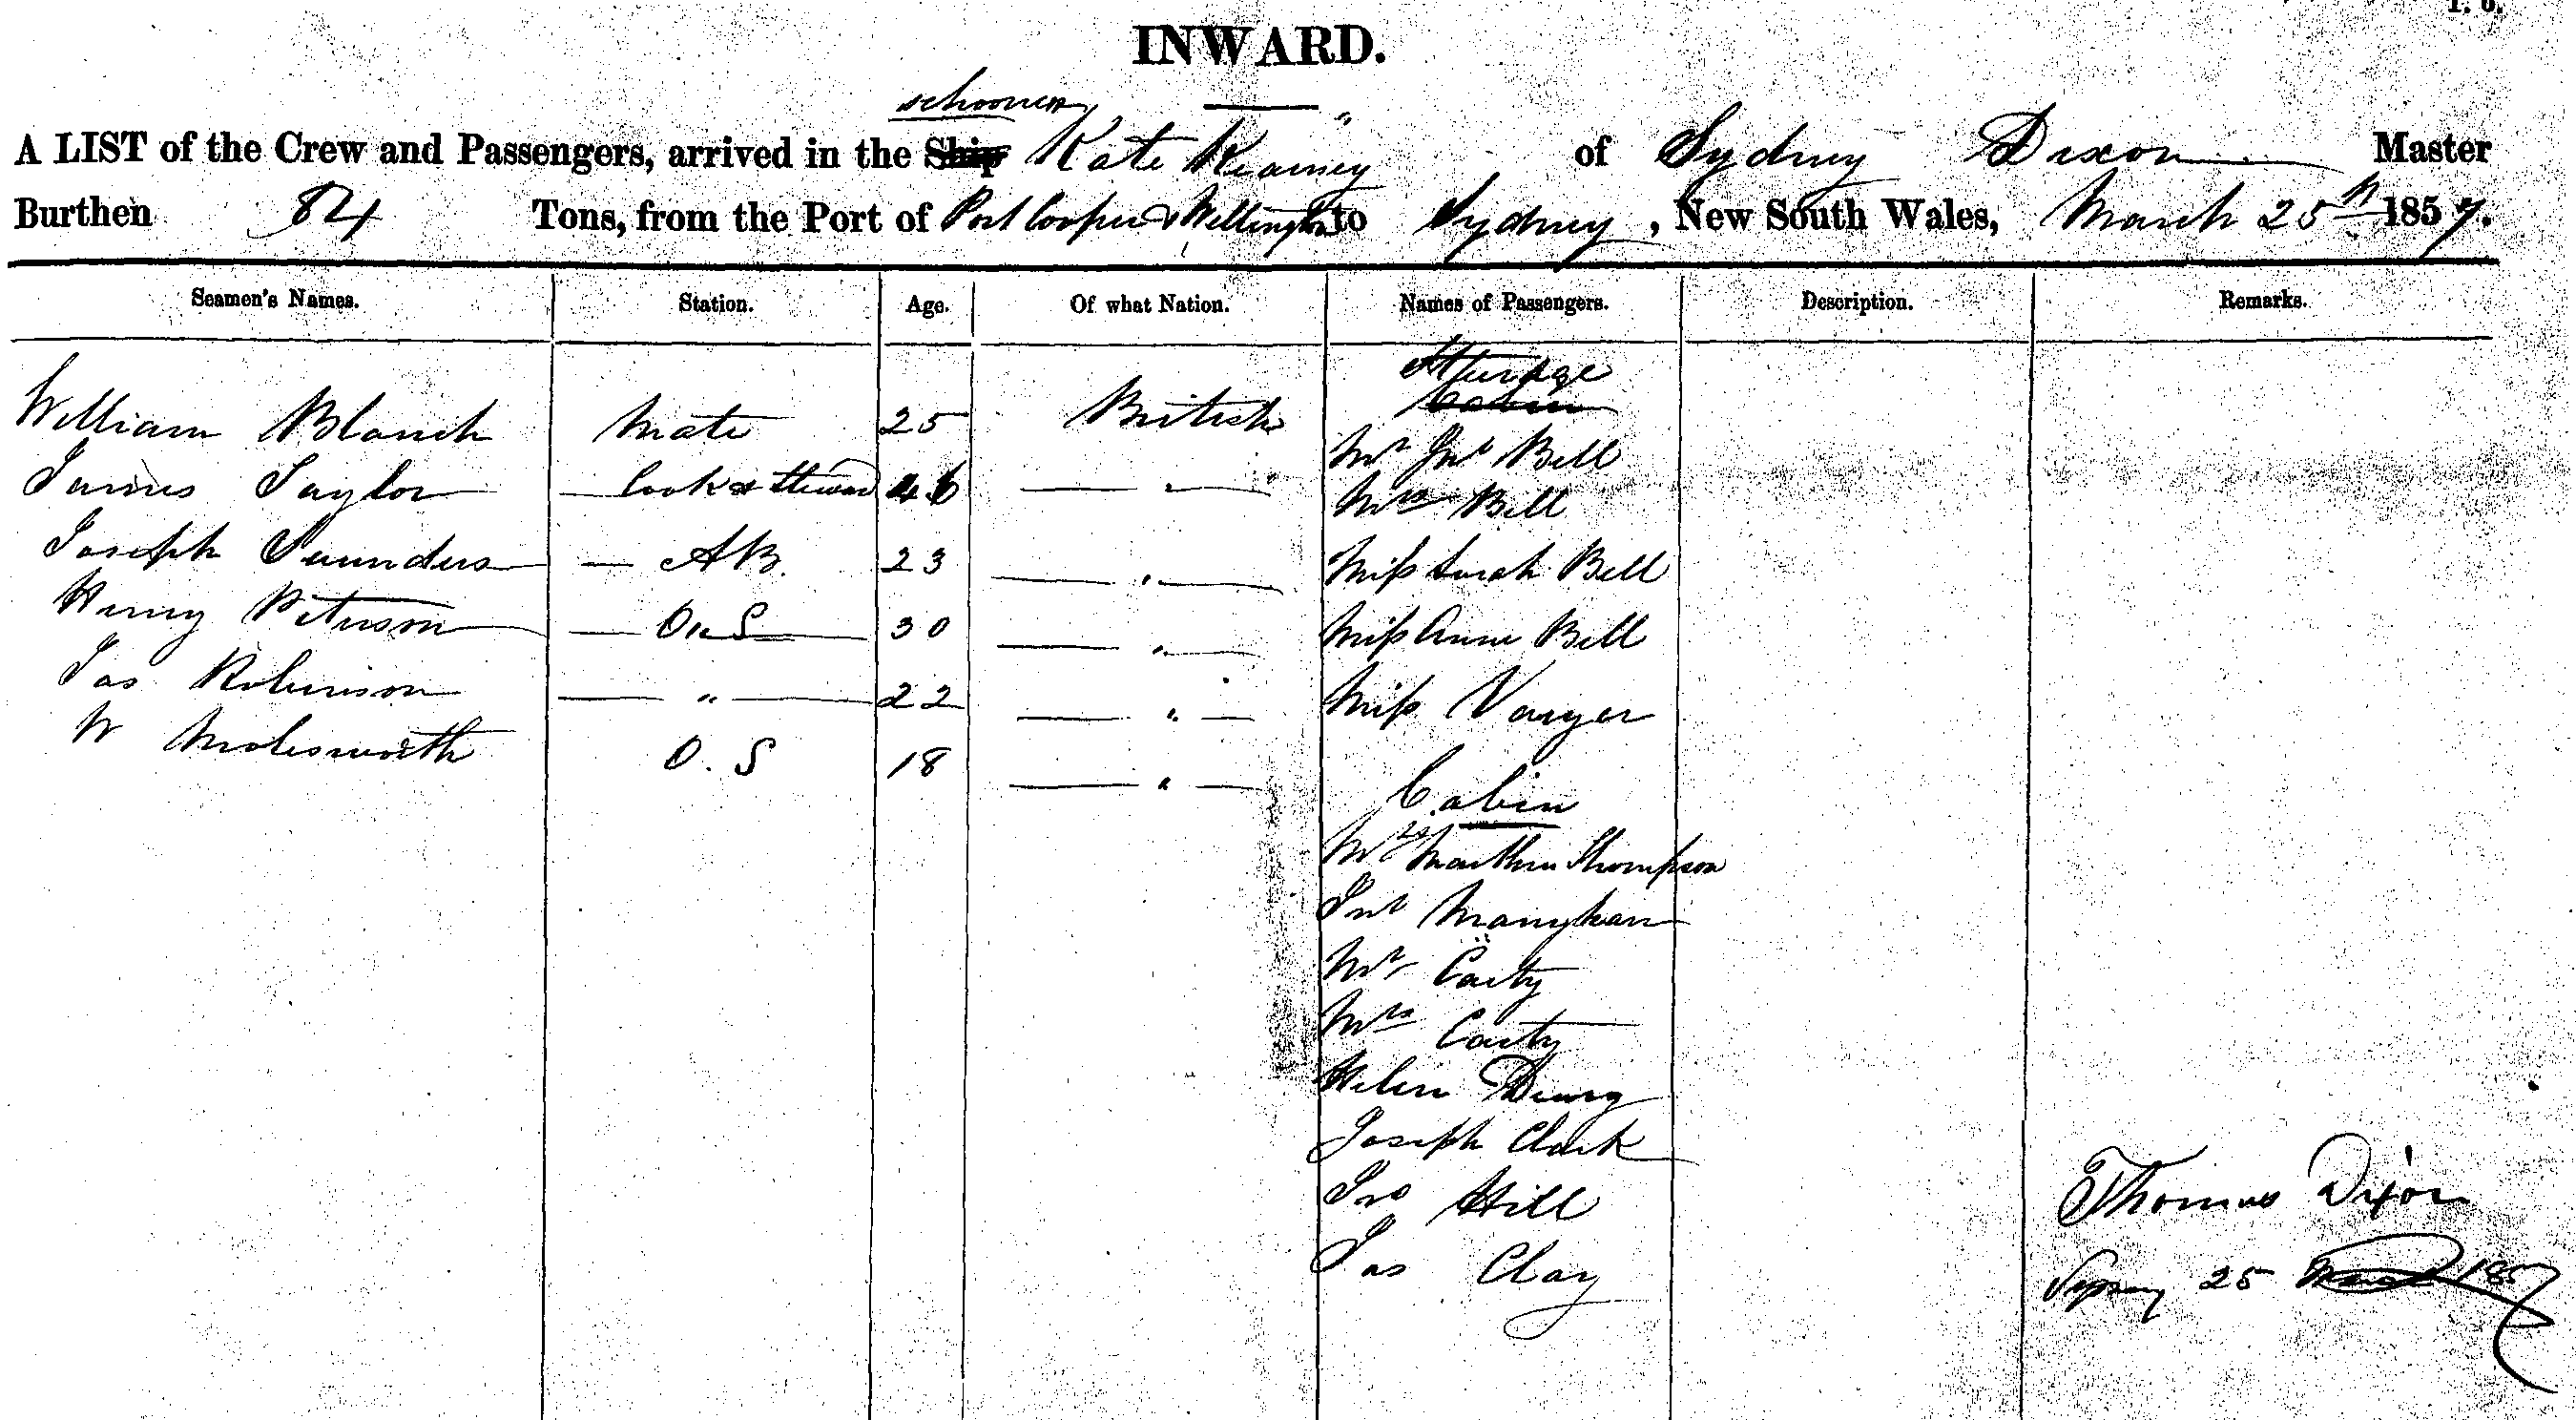 INWARD.
schooner
A LIST of the Crew and Passengers, arrived in the Ship Kate Kearney of Sydney Dixon Master
Burthen 84 Tons, from the Port of Port Cooper & Wellington to Sydney, New South Wales, March 25th 1857.
Seamen's Names. Station. Age. Of what Nation. Names of Passengers. Description. Remarks.
Steerage
Cabin
William Blanch Mate 25 British Mr Jno Bell
James Taylor Cook & Steward 46 " Mrs Bell
Joseph Saunders AB. 23 " Miss Sarah Bell
Henry Peterson O. S 30 " Miss Anne Bell
Jas Robinson " 22 " Miss
W Molesworth O. S 18 "
Cabin
Thompson
Jno
Mr Carty
Mrs Carty
Helen
Joseph Clark
Jno Hill
Jas Clay
Thomas Dixon
Sydney 25 March 185